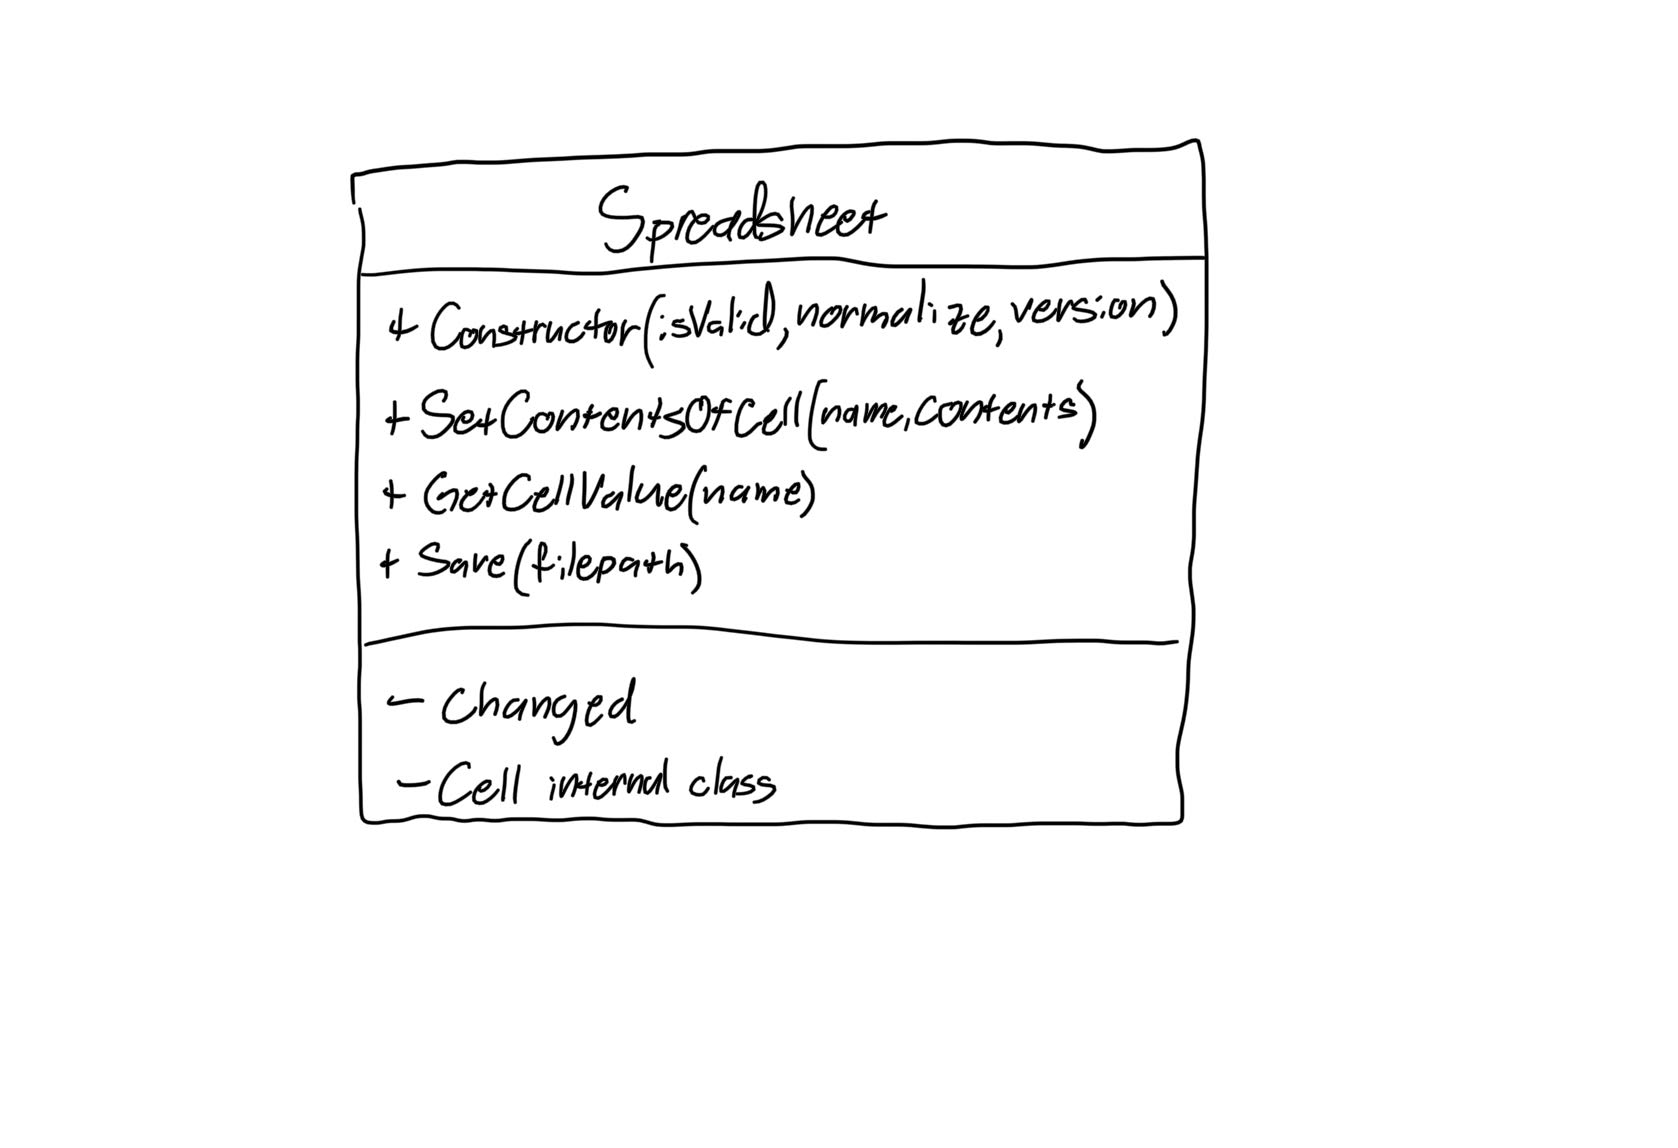 Spreadsheet
+ Constructor(isValid, normalize, version)
+ SetContentsOfCell(name, contents)
+ GetCellValue(name)
+ Save(filepath)
- Changed
- Cell internal class